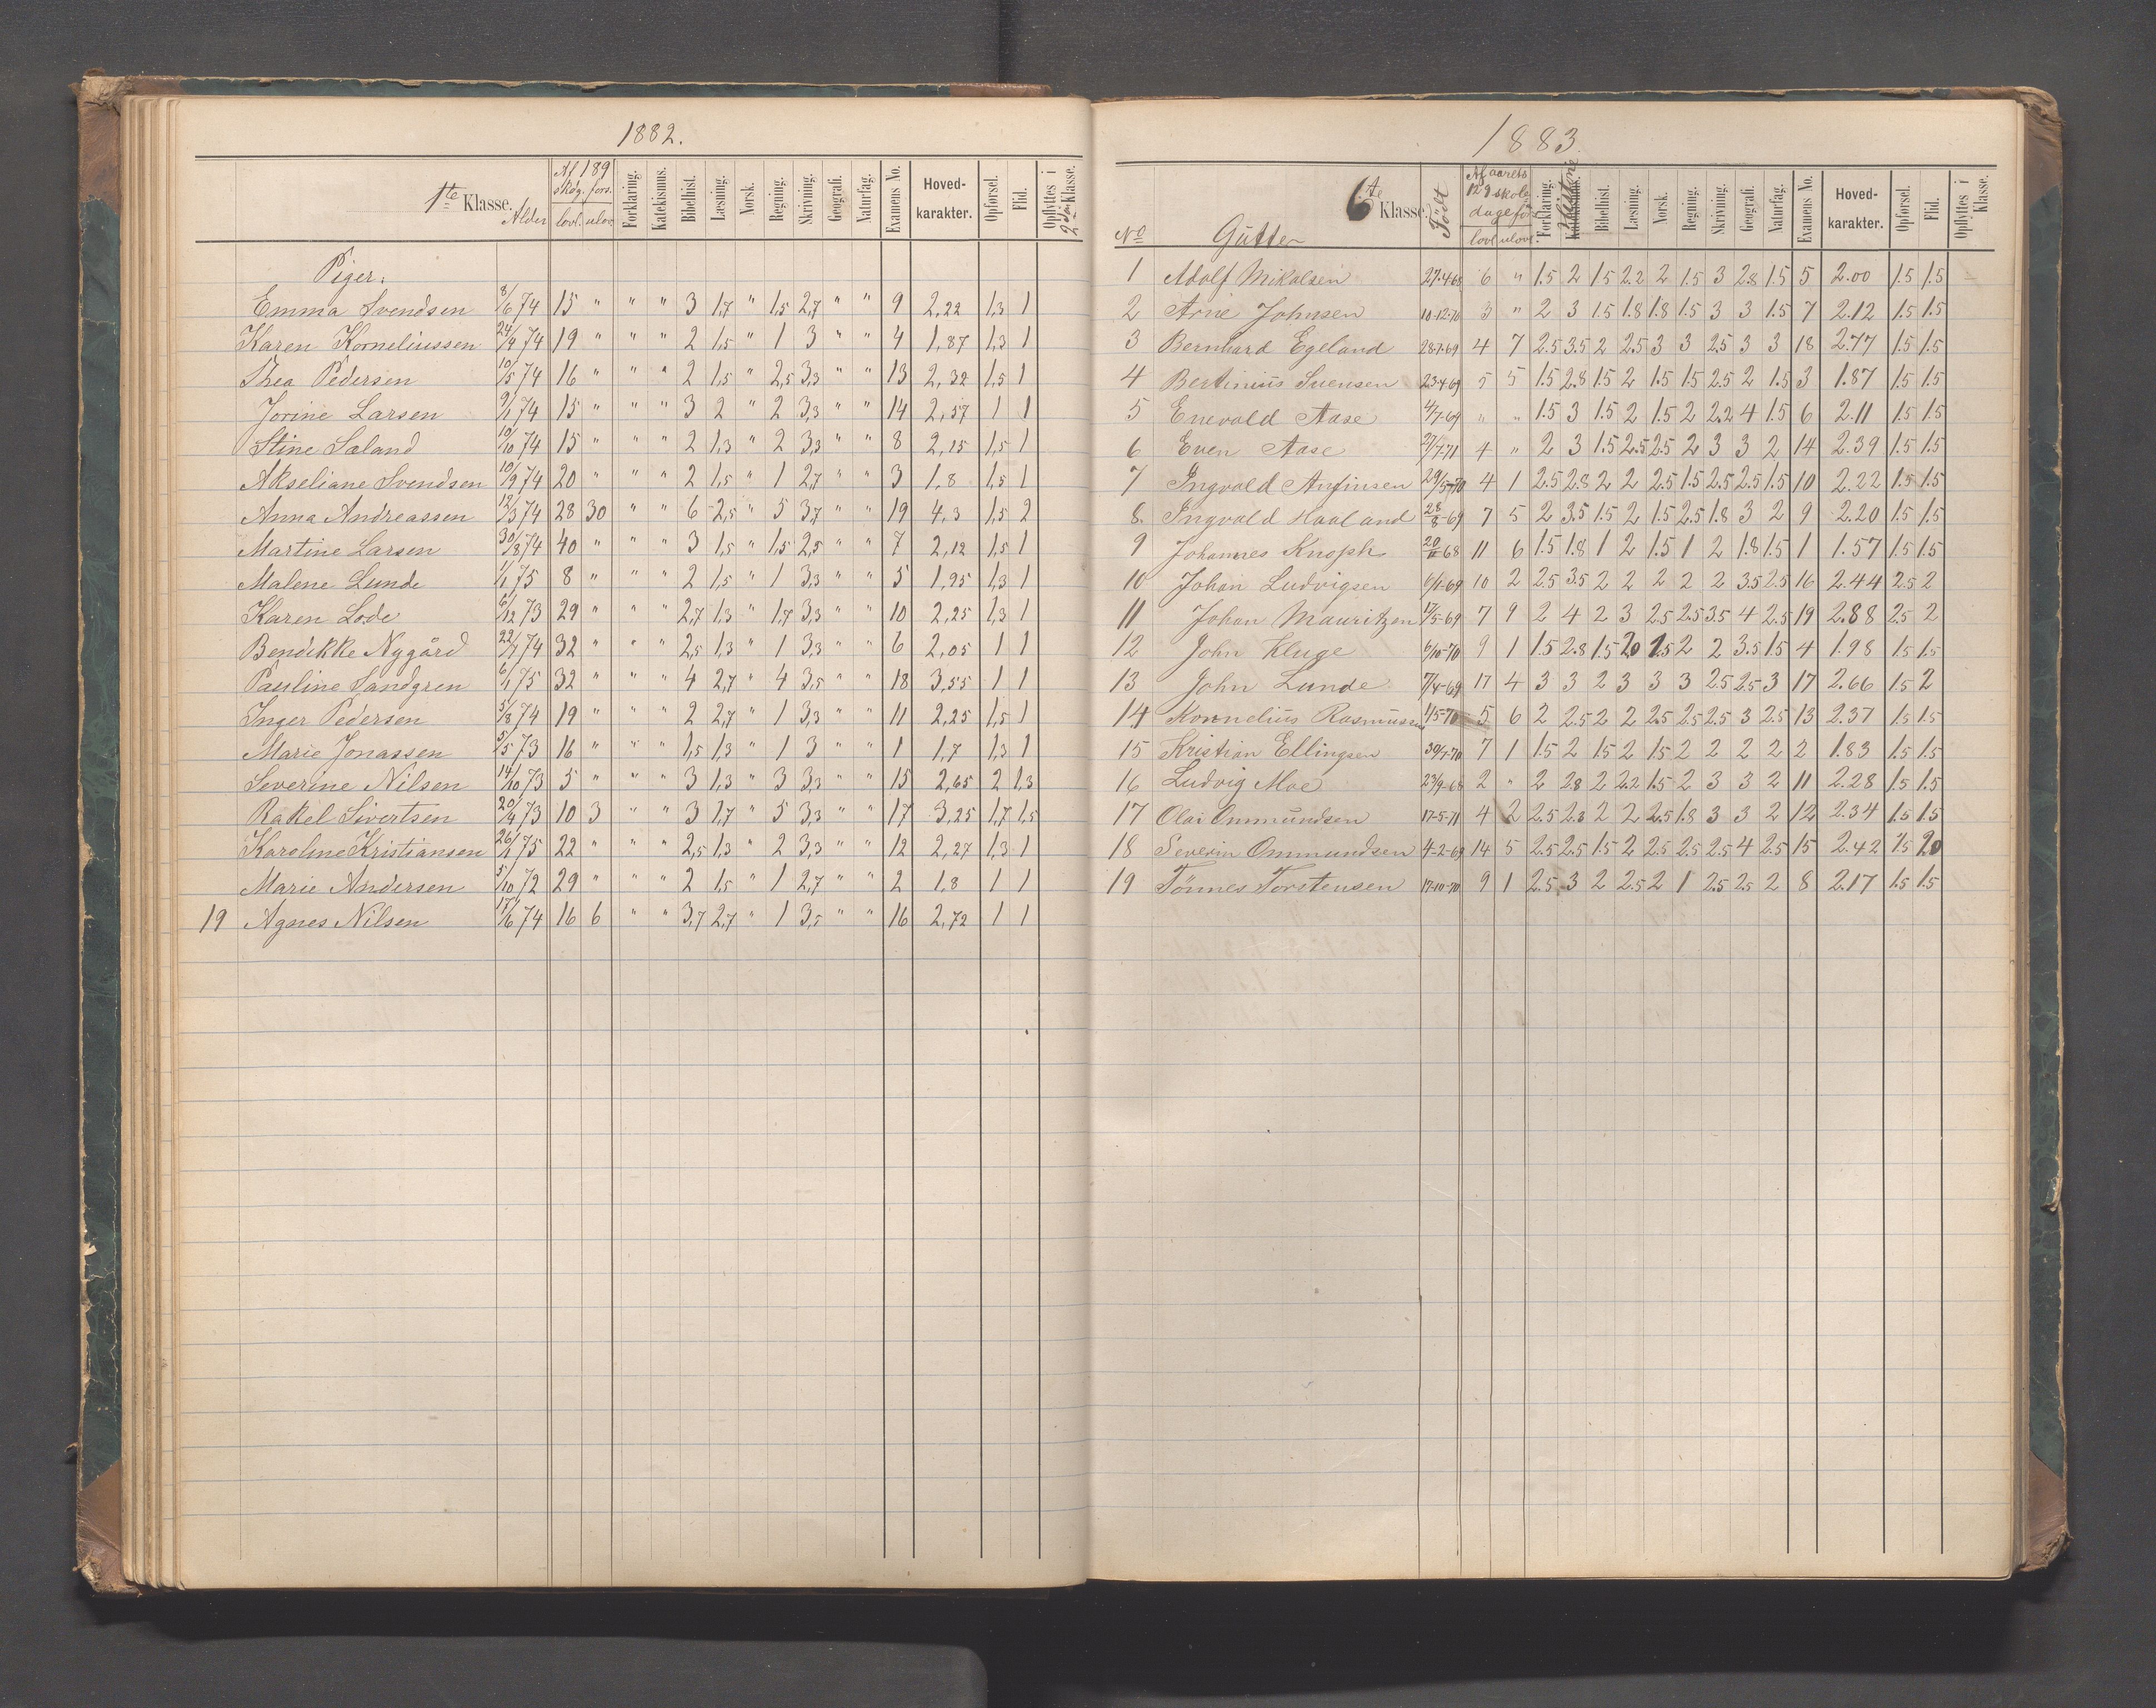 1882.
1te Klasse. Alder Af 189 skdg. fors. lovl. ulov. Forklaring. Katekismus. Bibelhist. Læsning. Norsk. Regning. Skrivning. Geografi. Naturfag. Examens No. Hoved-karakter. Opførsel. Flid. Opflyttes i 2den Klasse.
Piger:
Emma Svendsen 8/6 74 15 " " " 3 1,7 " 1,5 2,7 " " 9 2,22 1,3 1
Karen Korneliussen 24/9 74 19 " " " 2 1,5 " 1 3 " " 4 1,87 1,3 1
Thea Pedersen 10/5 74 16 " " " 2 1,5 " 2,5 3,3 " " 13 2,32 1,5 1
Jorine Larsen 9/1 74 15 " " " 3 2 " 2 3,3 " " 14 2,57 1 1
Stine Søland 10/10 74 15 " " " 2 1,3 " 2 3,3 " " 8 2,15 1,5 1
Akseliane Svendsen 10/9 74 20 " " " 2 1,5 " 1 2,7 " " 3 1,8 1,5 1
Anna Andreassen 12/3 74 28 30 " " 6 2,5 " 5 3,7 " " 19 4,3 1,5 2
Martine Larsen 30/8 74 40 " " " 3 1,5 " 1,5 2,5 " " 7 2,12 1,5 1
Malene Lunde 1/1 75 8 " " " 2 1,5 " 1 3,3 " " 5 1,95 1,3 1
Karen Lode 6/12 73 29 " " " 2,7 1,3 " 1,7 3,3 " " 10 2,25 1,3 1
Bendikke Nygård 22/7 74 32 " " " 2,5 1,3 " 1 3,3 " " 6 2,05 1 1
Pauline Sandgren 6/1 75 32 " " " 4 2,7 " 4 3,5 " " 18 3,55 1 1
Inger Pedersen 5/8 74 19 " " " 2 2,7 " 1 3,3 " " 11 2,25 1,5 1
Marie Jonassen 5/5 73 16 " " " 1,5 1,3 " 1 3 " " 1 1,7 1,3 1
Severine Nilsen 14/10 73 5 " " " 3 1,3 " 3 3,3 " " 15 2,65 2 1,3
Rakel Sivertsen 20/4 73 10 3 " " 3 1,7 " 5 3,3 " " 17 3,25 1,7 1,5
Karoline Kristiansen 26/1 75 22 " " " 2,5 1,3 " 2 3,3 " " 12 2,27 1,3 1
Marie Andersen 5/10 72 29 " " " 2 1,5 " 1 2,7 " " 2 1,8 1 1
19 Agnes Nilsen 17/6 74 16 6 " " 3,7 2,7 " 1 3,5 " " 16 2,72 1 1
1883.
No Gutter 6te Klasse. Født Af aarets 129 skoledage fors. lovl. ulovl. Forklaring. Historie Bibelhist. Læsning. Norsk. Regning. Skrivning. Geografi. Naturfag. Examens No. Hoved-karakter. Opførsel. Flid. Opflyttes i Klasse.
1 Adolf Mikalsen 27-4-68 6 " 1.5 2 1.5 2.2 2 1.5 3 2.8 1.5 5 2.00 1.5 1.5
2 Arne Johnsen 10-12-70 3 " 2 3 1.5 1.8 1.8 1.5 3 3 1.5 7 2.12 1.5 1.5
3 Bernhard Egeland 28-7-69 4 7 2.5 3.5 2 2.5 3 3 2.5 3 3 18 2.77 1.5 1.5
4 Bertinius Svensen 23-4-69 5 5 1.5 2.8 1.5 2 1.5 1.5 2.5 2 1.5 3 1.87 1.5 1.5
5 Enevald Aase 4/7-69 " " 1.5 3 1.5 2 1.5 2 2.2 4 1.5 6 2.11 1.5 1.5
6 Even Aase 27/7-71 4 " 2 3 1.5 2.5 2.5 2 3 3 2 14 2.39 1.5 1.5
7 Ingvald Anfinsen 29/5-70 4 1 2.5 2.8 2 2 2.5 1.5 2.5 2.5 1.5 10 2.22 1.5 1.5
8. Ingvald Haaland 28/8-69 7 5 2 3.5 1.5 2 1.5 2.5 1.8 3 2 9 2.20 1.5 1.5
9 Johannes Knoph 20/11 68 11 6 1.5 1.8 1 2 1.5 1 2 1.8 1.5 1 1.57 1.5 1.5
10 Johan Ludvigsen 6/1-69 10 2 2.5 3.5 2 2 2 2 2 3.5 2.5 16 2.44 2.5 2
11 Johan Mauritzen 17/5-69 7 9 2 4 2 3 2.5 2.5 3.5 4 2.5 19 2.88 2.5 2
12 John Kluge 6/10-70 9 1 1.5 2.8 1.5 2.0 1.5 2 2 3.5 1.5 4 1.98 1.5 1.5
13 John Lunde 7/4-69 17 4 3 3 2 3 3 3 2.5 2.5 3 17 2.66 1.5 2
14 Kornelius Rasmussen 1/5-70 5 6 2 2.5 2 2 2.5 2.5 2.5 3 2.5 13 2.37 1.5 1.5
15 Kristian Ellingsen 30/7-70 7 1 1.5 2 1.5 2 1.5 2 2 2 2 2 1.83 1.5 1.5
16 Ludvig Moe 23/9-68 2 " 2 2.8 2 2.2 1.5 2 3 3 2 11 2.28 1.5 1.5
17 Olai Ommundsen 17-5-71 4 2 2.5 2.3 2 2 2.5 1.8 3 3 2 12 2.34 1.5 1.5
18 Severin Ommundsen 4-2-69 14 5 2.5 2.5 1.5 2 2.5 2.5 2.5 4 2.5 15 2.42 1.5 2.0
19 Tönnes Torstensen 17-10-70 9 1 2.5 3 2 2.5 2 1 2.5 2.5 2 8 2.17 1.5 1.5